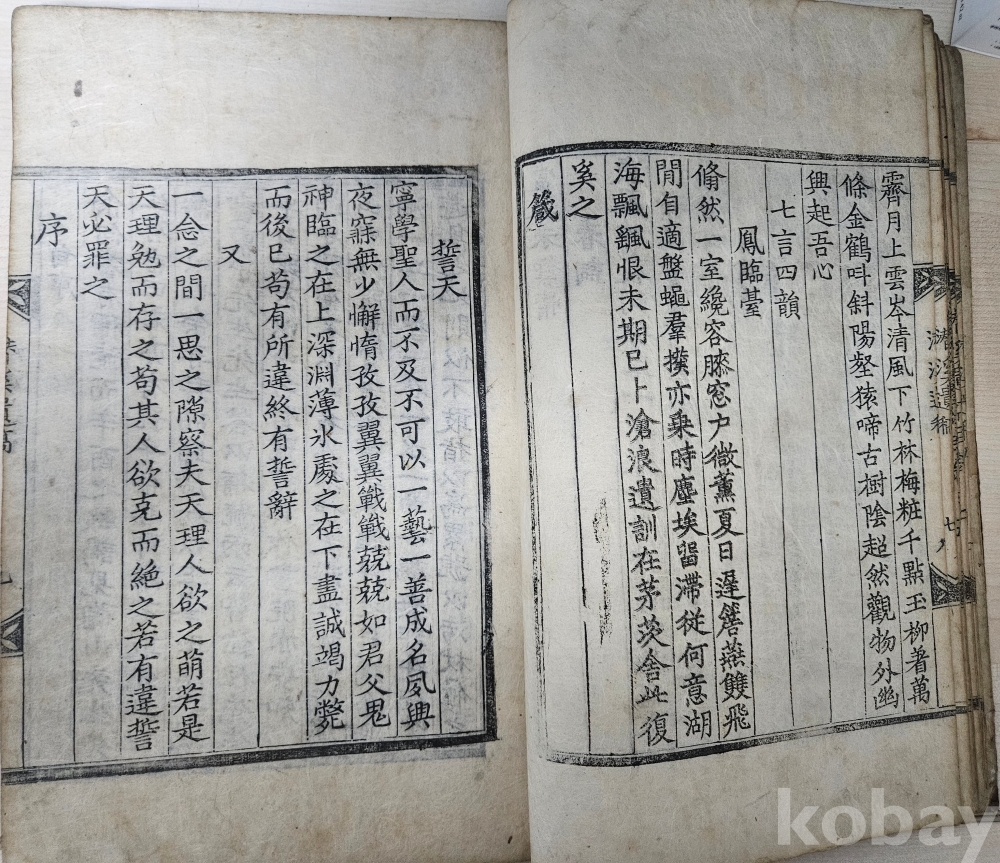 霽月上雲岑清風下竹林梅粧千點玉柳著萬
條金鶴呌斜陽壑猿啼古樹陰超然觀物外幽
興起吾心
七言四韻
鳳臨臺
翛然一室纔容膝窓户微薰夏日遲簷燕雙飛
閒自適盤蠅羣撲亦乗時塵埃留滯從何意湖
海飄飄恨未期已卜滄浪遺訓在茅茨舍此復
奚之
箴
誓天
寧學聖人而不及不可以一藝一善成名夙興
夜寐無少懈惰孜孜翼翼戰戰兢兢如君父鬼
神臨之在上深淵薄氷處之在下盡誠竭力斃
而後已苟有所違終有誓辭
又
一念之間一思之隙察夫天理人欲之萌若是
天理勉而存之苟其人欲克而絶之若有違誓
天必罪之
序
kobay